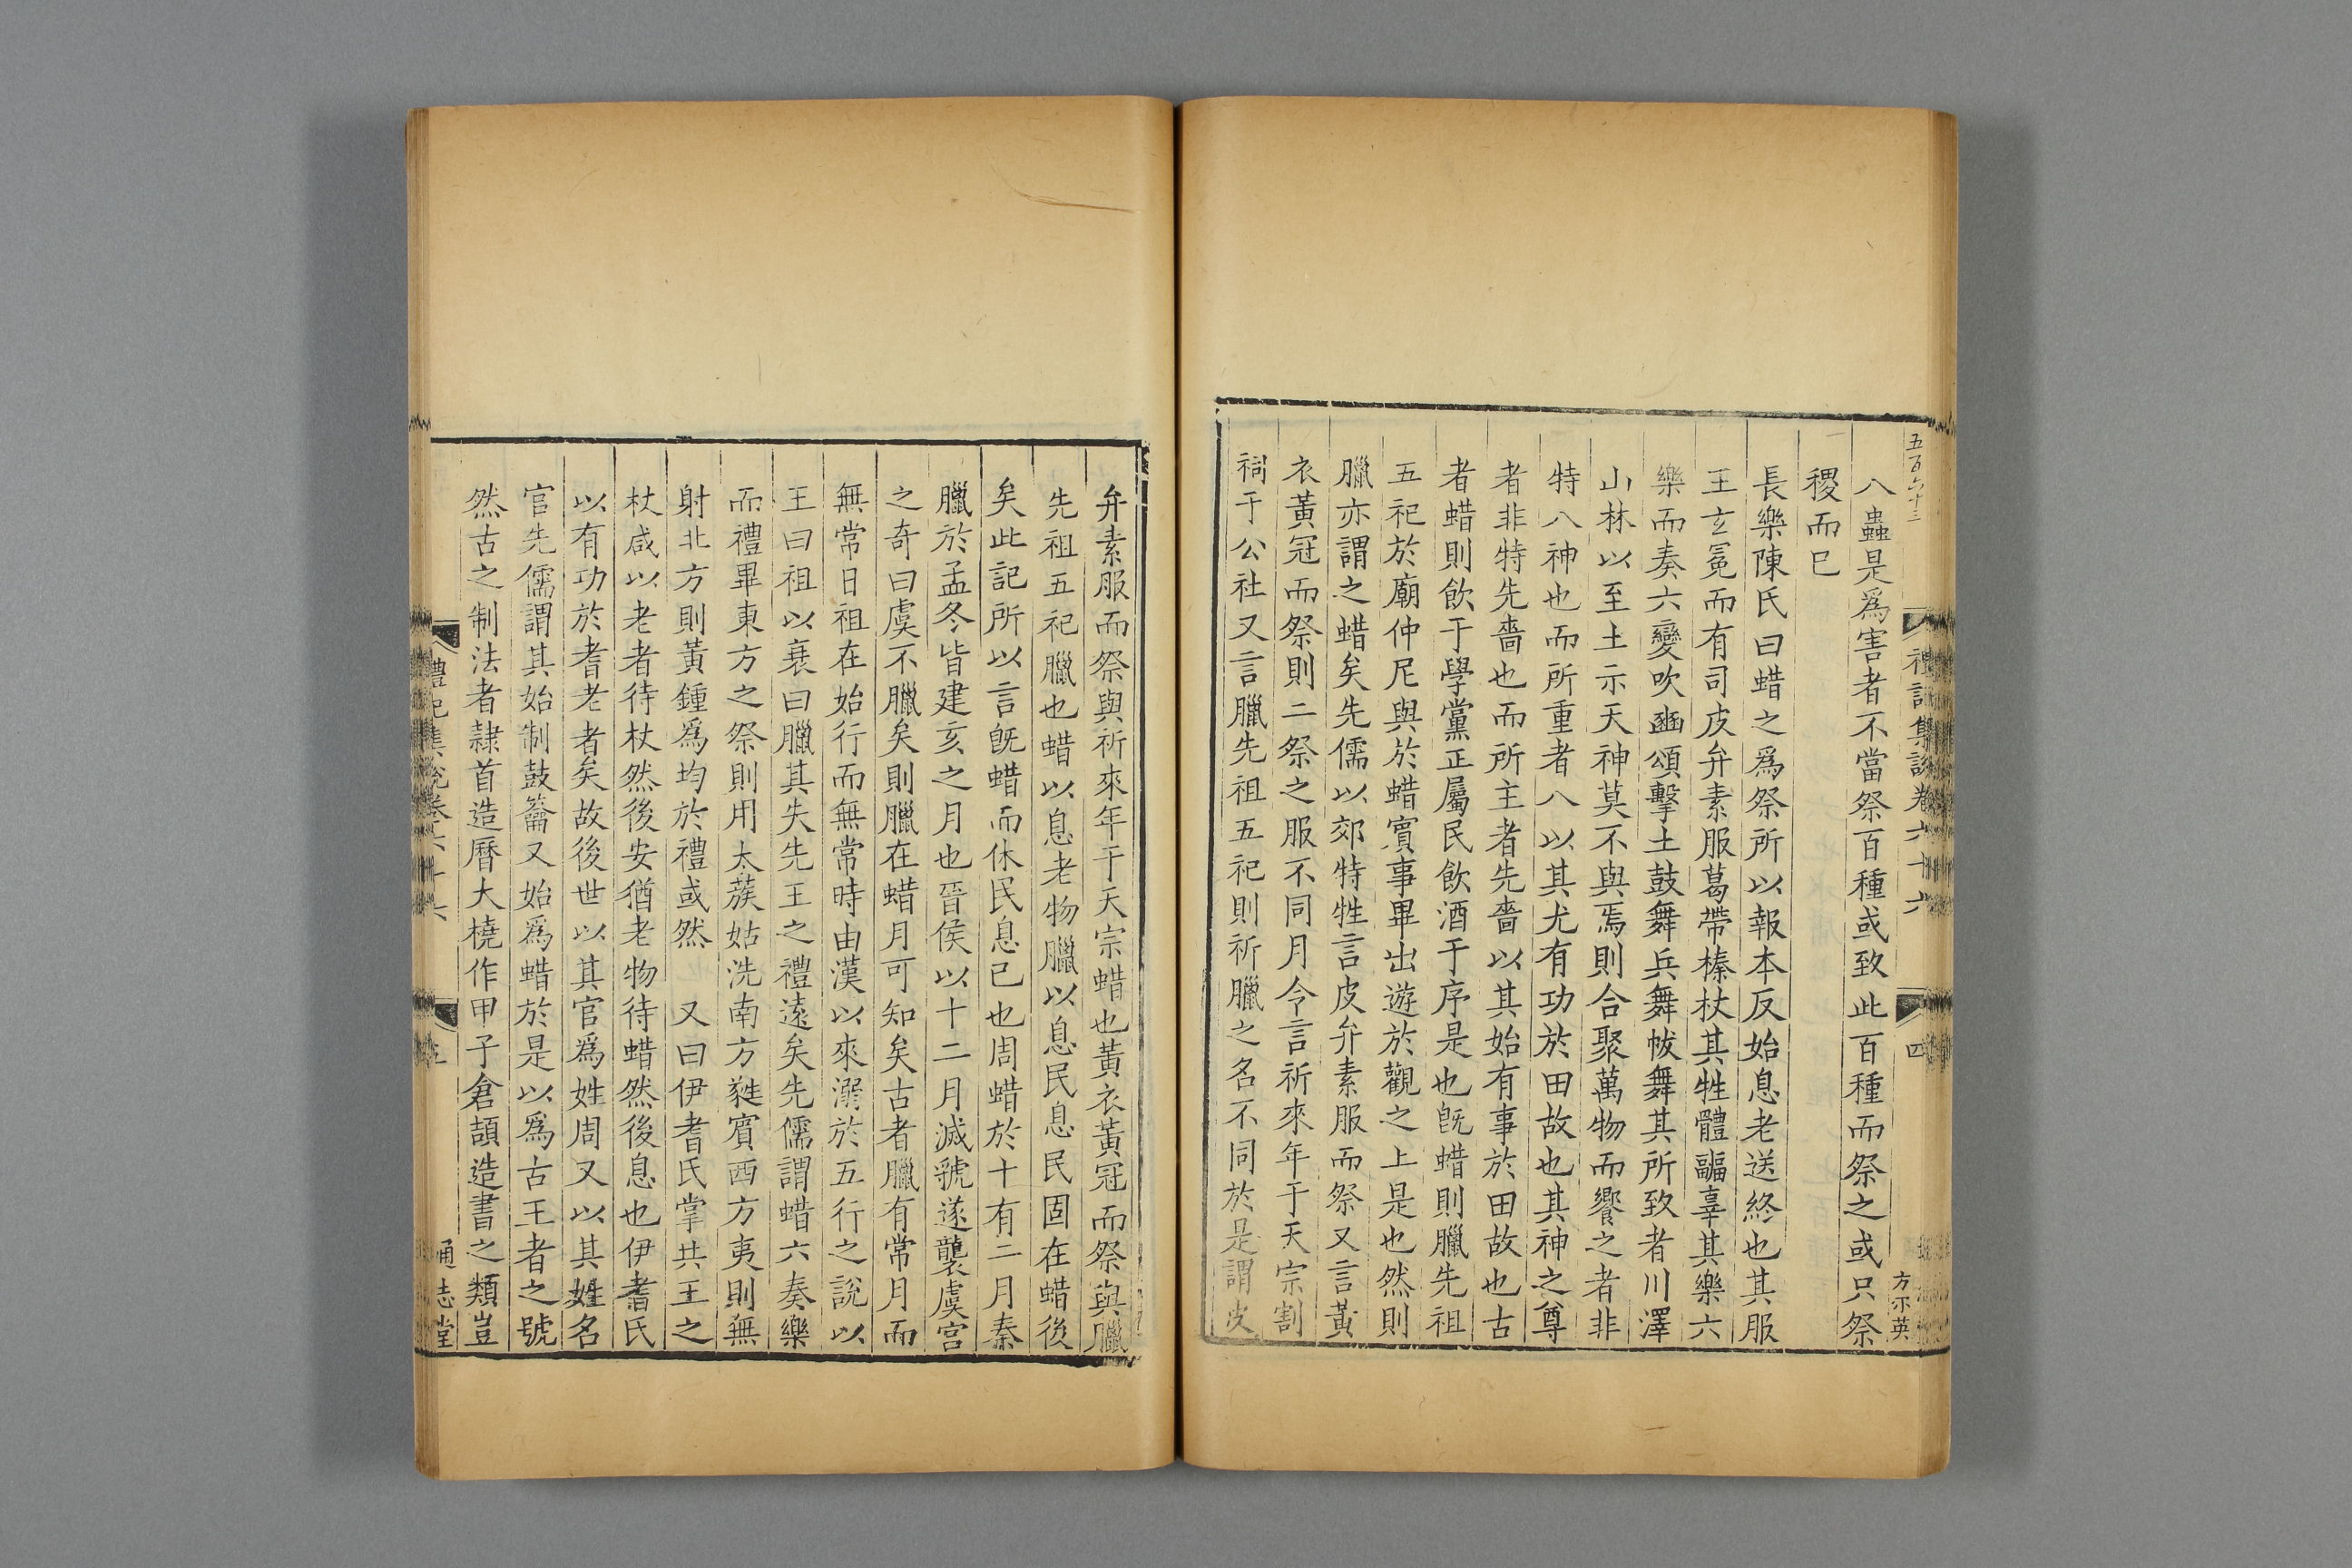 五百六十三
禮記集說卷六十六
四
方尔英
八蟲是爲害者不當祭百種或致此百種而祭之或只祭
稷而已
長樂陳氏曰蜡之爲祭所以報本反始息老送終也其服
王玄冕而有司皮弁素服葛帶榛杖其牲體疈辜其樂六
樂而奏六變吹豳頌擊土鼓舞兵舞帗舞其所致者川澤
山林以至土示天神莫不與焉則合聚萬物而饗之者非
特八神也而所重者八以其尤有功於田故也其神之尊
者非特先嗇也而所主者先嗇以其始有事於田故也古
者蜡則飲于學黨正屬民飲酒于序是也旣蜡則臘先祖
五祀於廟仲尼與於蜡賓事畢出遊於觀之上是也然則
臘亦謂之蜡矣先儒以郊特牲言皮弁素服而祭又言黃
衣黃冠而祭則二祭之服不同月令言祈來年于天宗割
祠于公社又言臘先祖五祀則祈臘之名不同於是謂皮
弁素服而祭與祈來年于天宗蜡也黃衣黃冠而祭與臘
先祖五祀臘也蜡以息老物臘以息民息民固在蜡後
矣此記所以言旣蜡而休民息已也周蜡於十有二月秦
臘於孟冬皆建亥之月也晉侯以十二月滅虢遂襲虞宮
之奇曰虞不臘矣則臘在蜡月可知矣古者臘有常月而
無常日祖在始行而無常時由漢以來溺於五行之說以
王曰祖以衰曰臘其失先王之禮遠矣先儒謂蜡六奏樂
而禮畢東方之祭則用太蔟姑洗南方蕤賓西方夷則無
射北方則黃鍾爲均於禮或然　又曰伊耆氏掌共王之
杖咸以老者待杖然後安猶老物待蜡然後息也伊耆氏
以有功於耆老者矣故後世以其官爲姓周又以其姓名
官先儒謂其始制鼓籥又始爲蜡於是以爲古王者之號
然古之制法者隸首造曆大橈作甲子倉頡造書之類豈
禮記集說卷六十六
五
通志堂